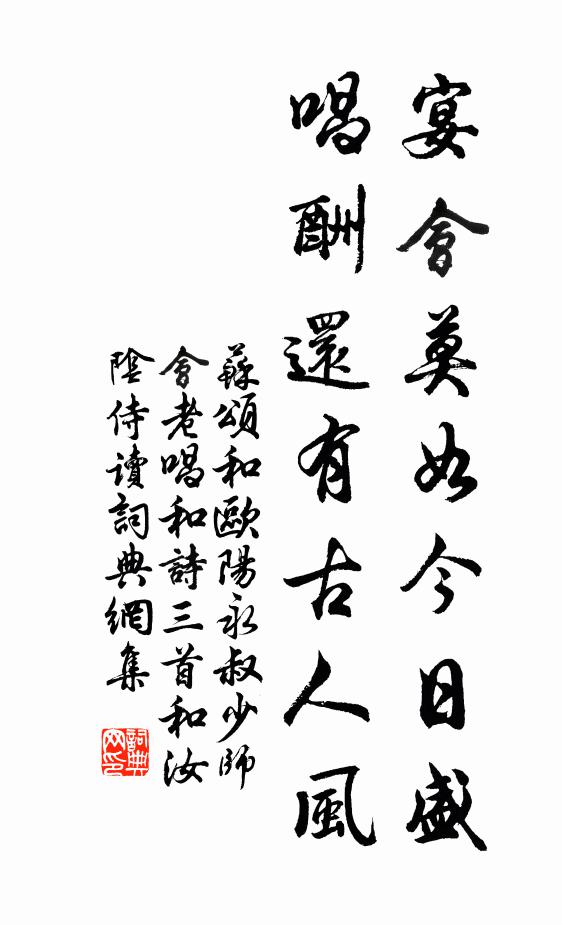 宴會莫如今日盛
唱酬還有古人風
蘇頌和歐陽永叔少師
會老唱和詩三首和汝
陰侍讀詞典網集
詞典
网印